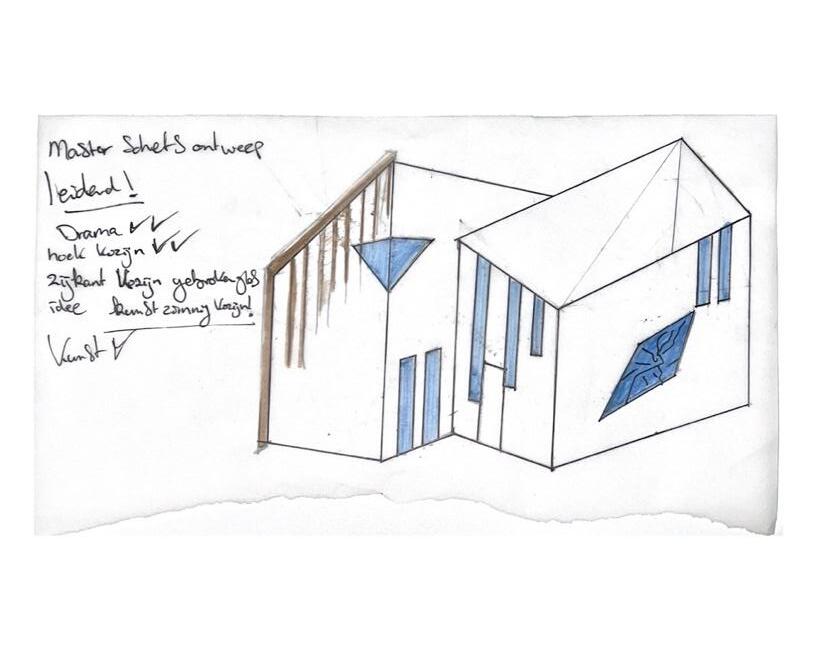 Master Schets ontweep
leidend!
Drama ✓✓
hoek kozijn ✓✓
zijkant kozijn gebroken glas
idee kunst zinnig kozijn!
Kunst ✓